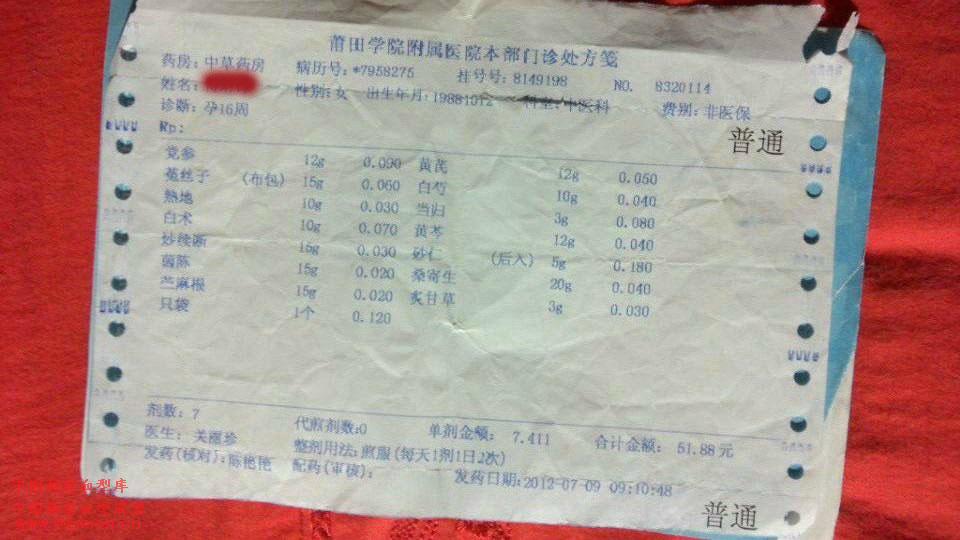 莆田学院附属医院本部门诊处方笺
药房: 中草药房 病历号: *7958275 挂号号: 8149198 NO. 8320114
姓名: 性别: 女 出生年月: 19881012 科室: 中医科 费别: 非医保
诊断: 孕16周
Rp: 普通
党参 12g 0.090 黄芪 12g 0.050
菟丝子 (布包) 15g 0.060 白芍 10g 0.040
熟地 10g 0.030 当归 3g 0.080
白术 10g 0.070 黄芩 12g 0.040
炒续断 15g 0.030 砂仁 (后入) 5g 0.180
茵陈 15g 0.020 桑寄生 20g 0.040
苎麻根 15g 0.020 炙甘草 3g 0.030
只袋 1个 0.120
剂数: 7 代煎剂数:0 单剂金额: 7.411 合计金额: 51.88元
医生: 关丽珍 整剂用法: 煎服(每天1剂1日2次)
发药(核对): 陈艳艳 配药(审核): 发药日期:2012-07-09 09:10:48
普通
血型库